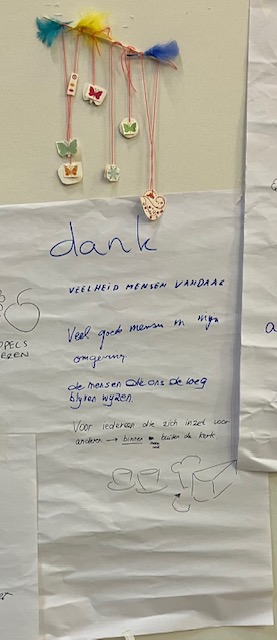 dank
VEELHEID MENSEN VANDAAG
Veel goede mensen in mijn
omgeving
de mensen die ons de weg
blijven wijzen.
Voor iedereen die zich inzet voor
anderen → binnen en buiten de kerk
PPELS
EREN
a
er